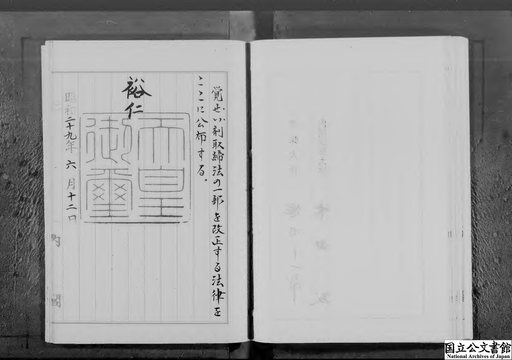 覚せい剤取締法の一部を改正する法律を
ここに公布する。
裕仁
天皇
御璽
昭和二十九年六月十二日
内閣
国立公文書館
National Archives of Japan